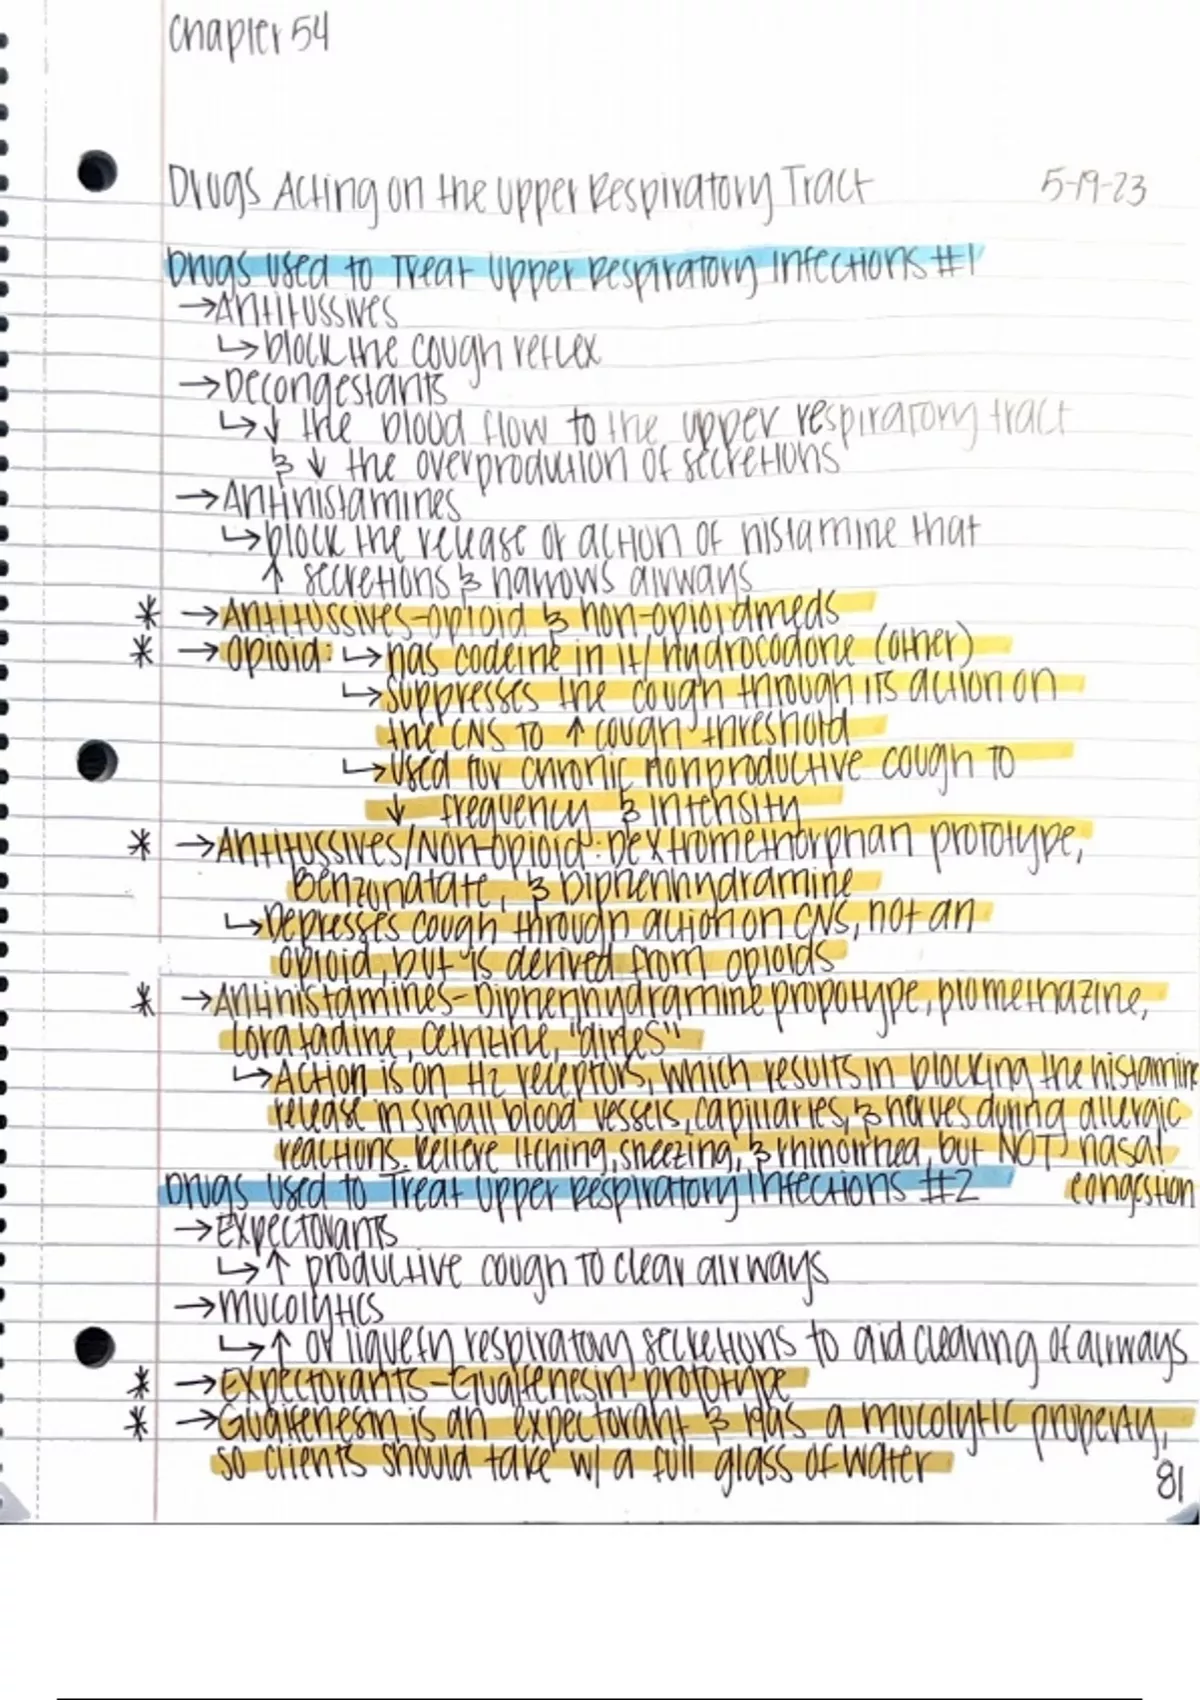 Chapter 54
Drugs Acting on the Upper Respiratory Tract 5-19-23
Drugs Used to Treat Upper Respiratory Infections #1
→Antitussives
↳block the cough reflex
→Decongestants
↳↓ the blood flow to the upper respiratory tract
& ↓ the overproduction of secretions
→Antihistamines
↳block the release or action of histamine that
↑ secretions & narrows airways
* →Antitussives-opioid & non-opioid meds
* →Opioid: ↳has codeine in it/hydrocodone (other)
↳suppresses the cough through its action on
the CNS to ↑ cough threshold
↳Used for chronic nonproductive cough to
↓ frequency & intensity
* →Antitussives/Non-opioid: Dextromethorphan prototype,
Benzonatate, & Diphenhydramine
↳Depresses cough through action on CNS, not an
opioid, but is derived from opioids
* →Antihistamines-Diphenhydramine propotype, promethazine,
Loratadine, Cetirizine, "dines"
↳Action is on H2 receptors, which results in blocking the histamine
release in small blood vessels, capillaries, & nerves during allergic
reactions. Relieve itching, sneezing, & rhinorrhea, but NOT nasal
congestion
Drugs Used to Treat Upper Respiratory Infections #2
→Expectorants
↳↑ productive cough to clear airways
→Mucolytics
↳↑ or liquefy respiratory secretions to aid clearing of airways
* →Expectorants-Guaifenesin prototype
* →Guaifenesin is an expectorant & has a mucolytic property,
so clients should take w/ a full glass of water
81